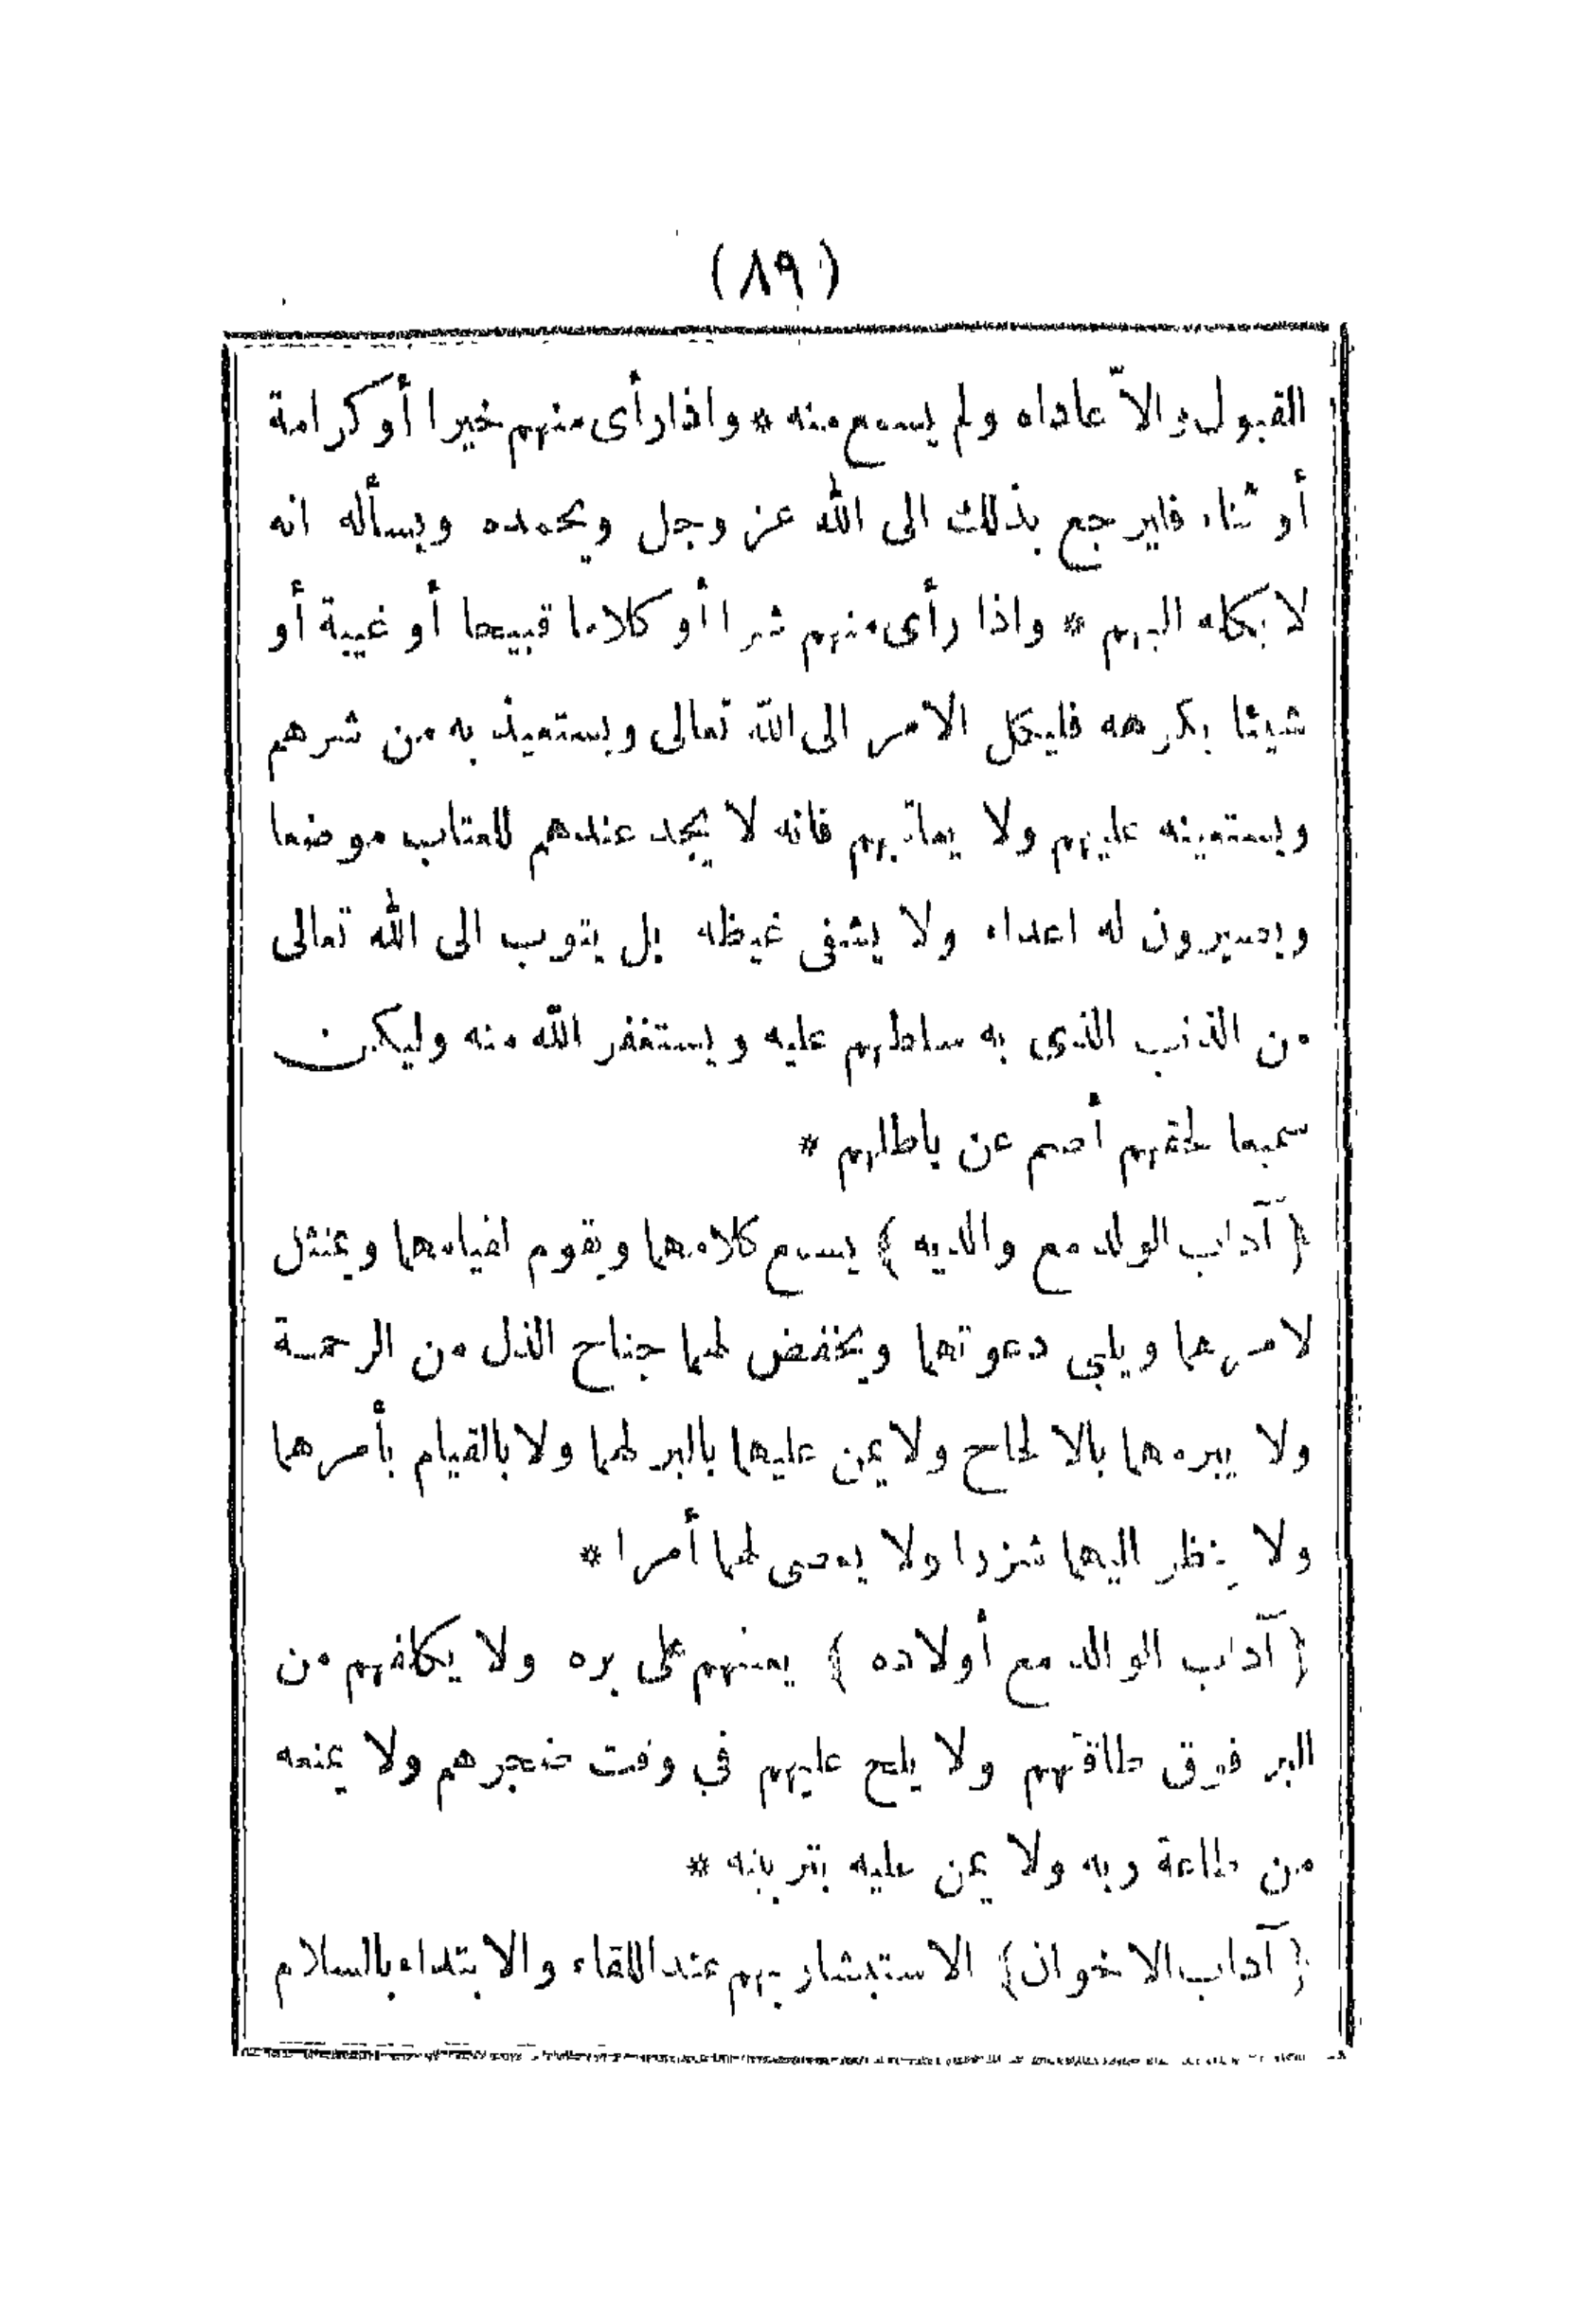 (٨٩)
القبول والاّ عاداه ولم يسمع منه * واذا رأى منهم خيرا أو كرامة
أو ثناء فليرجع بذلك الى الله عز وجل ويحمده ويسأله انه
لا يكله اليهم * واذا رأى منهم شرا أو كلاما قبيحا أو غيبة أو
شيئا يكرهه فليكل الامر الى الله تعالى ويستعيذ به من شرهم
ويستعينه عليهم ولا يعاتبهم فانه لا يجد عندهم للعتاب موضعا
ويصيرون له اعداء ولا يشفى غيظه بل يتوب الى الله تعالى
من الذنب الذى به سلطهم عليه ويستغفر الله منه وليكن
سميعا لحقهم أصم عن باطلهم *
{ آداب الولد مع والديه } يسمع كلامهما ويقوم لقيامهما ويمتثل
لامرهما ويلبى دعوتهما ويخفض لهما جناح الذل من الرحمة
ولا يبرمهما بالالحاح ولا يمن عليهما بالبر لهما ولا بالقيام بأمرهما
ولا ينظر اليهما شزرا ولا يعصى لهما أمرا *
{ آداب الوالد مع أولاده } يعينهم على بره ولا يكلفهم من
البر فوق طاقتهم ولا يلح عليهم في وقت ضجرهم ولا يمنعه
من طاعة ربه ولا يمن عليه بتربيته *
{ آداب الاخوان } الاستبشار بهم عند اللقاء والابتداء بالسلام